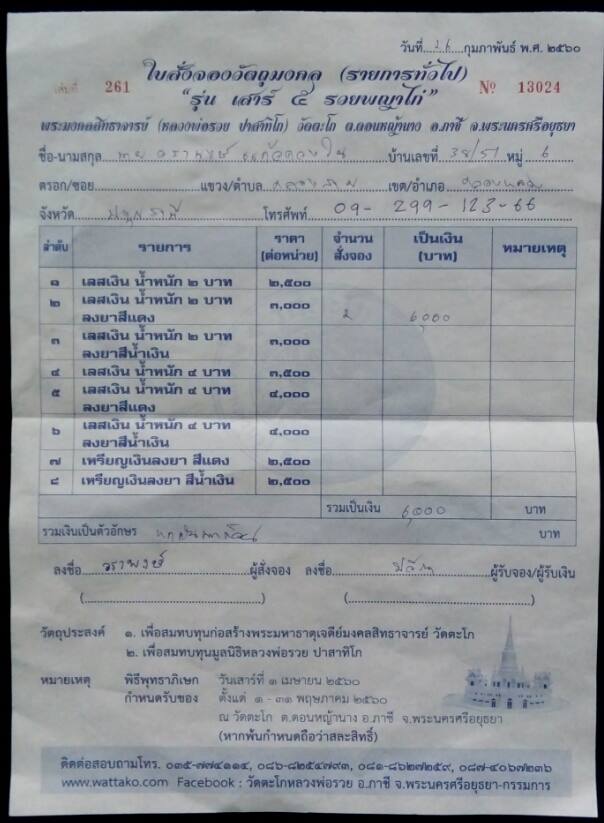 วันที่ 26 กุมภาพันธ์ พ.ศ. ๒๕๖๐
ใบสั่งจองวัตถุมงคล (รายการทั่วไป)
เล่มที่ 261 "รุ่น เสาร์ ๕ รวยพญาไก่" № 13024
พระมงคลสิทธาจารย์ (หลวงพ่อรวย ปาสาทิโก) วัดตะโก ต.ดอนหญ้านาง อ.ภาชี จ.พระนครศรีอยุธยา
ชื่อ-นามสกุล บ้านเลขที่ 38/51 หมู่ 6
ตรอก/ซอย แขวง/ตำบล คลองสาม เขต/อำเภอ คลองหลวง
จังหวัด ปทุมธานี โทรศัพท์ 09-299-123-66
ลำดับ รายการ ราคา (ต่อหน่วย) จำนวน สั่งจอง เป็นเงิน (บาท) หมายเหตุ
๑ เลสเงิน น้ำหนัก ๒ บาท ๒,๕๐๐
๒ เลสเงิน น้ำหนัก ๒ บาท ลงยาสีแดง ๓,๐๐๐ 2 6,000
๓ เลสเงิน น้ำหนัก ๒ บาท ลงยาสีน้ำเงิน ๓,๐๐๐
๔ เลสเงิน น้ำหนัก ๔ บาท ๓,๕๐๐
๕ เลสเงิน น้ำหนัก ๔ บาท ลงยาสีแดง ๔,๐๐๐
๖ เลสเงิน น้ำหนัก ๔ บาท ลงยาสีน้ำเงิน ๔,๐๐๐
๗ เหรียญเงินลงยา สีแดง ๒,๕๐๐
๘ เหรียญเงินลงยา สีน้ำเงิน ๒,๕๐๐
รวมเป็นเงิน 6,000 บาท
รวมเงินเป็นตัวอักษร หกพันบาทถ้วน บาท
ลงชื่อ วราพงษ์ ผู้สั่งจอง ลงชื่อ ผู้รับจอง/ผู้รับเงิน
( ) ( )
วัตถุประสงค์ ๑. เพื่อสมทบทุนก่อสร้างพระมหาธาตุเจดีย์มงคลสิทธาจารย์ วัดตะโก
๒. เพื่อสมทบทุนมูลนิธิหลวงพ่อรวย ปาสาทิโก
หมายเหตุ พิธีพุทธาภิเษก วันเสาร์ที่ ๑ เมษายน ๒๕๖๐
กำหนดรับของ ตั้งแต่ ๑ - ๓๑ พฤษภาคม ๒๕๖๐
ณ วัดตะโก ต.ดอนหญ้านาง อ.ภาชี จ.พระนครศรีอยุธยา
(หากพ้นกำหนดถือว่าสละสิทธิ์)
ติดต่อสอบถามโทร. ๐๓๕-๗๗๔๑๑๔, ๐๘๖-๘๒๕๔๗๙๓, ๐๘๑-๘๖๒๗๒๕๙, ๐๘๗-๔๐๖๗๒๓๖
www.wattako.com Facebook : วัดตะโกหลวงพ่อรวย อ.ภาชี จ.พระนครศรีอยุธยา-กรรมการ